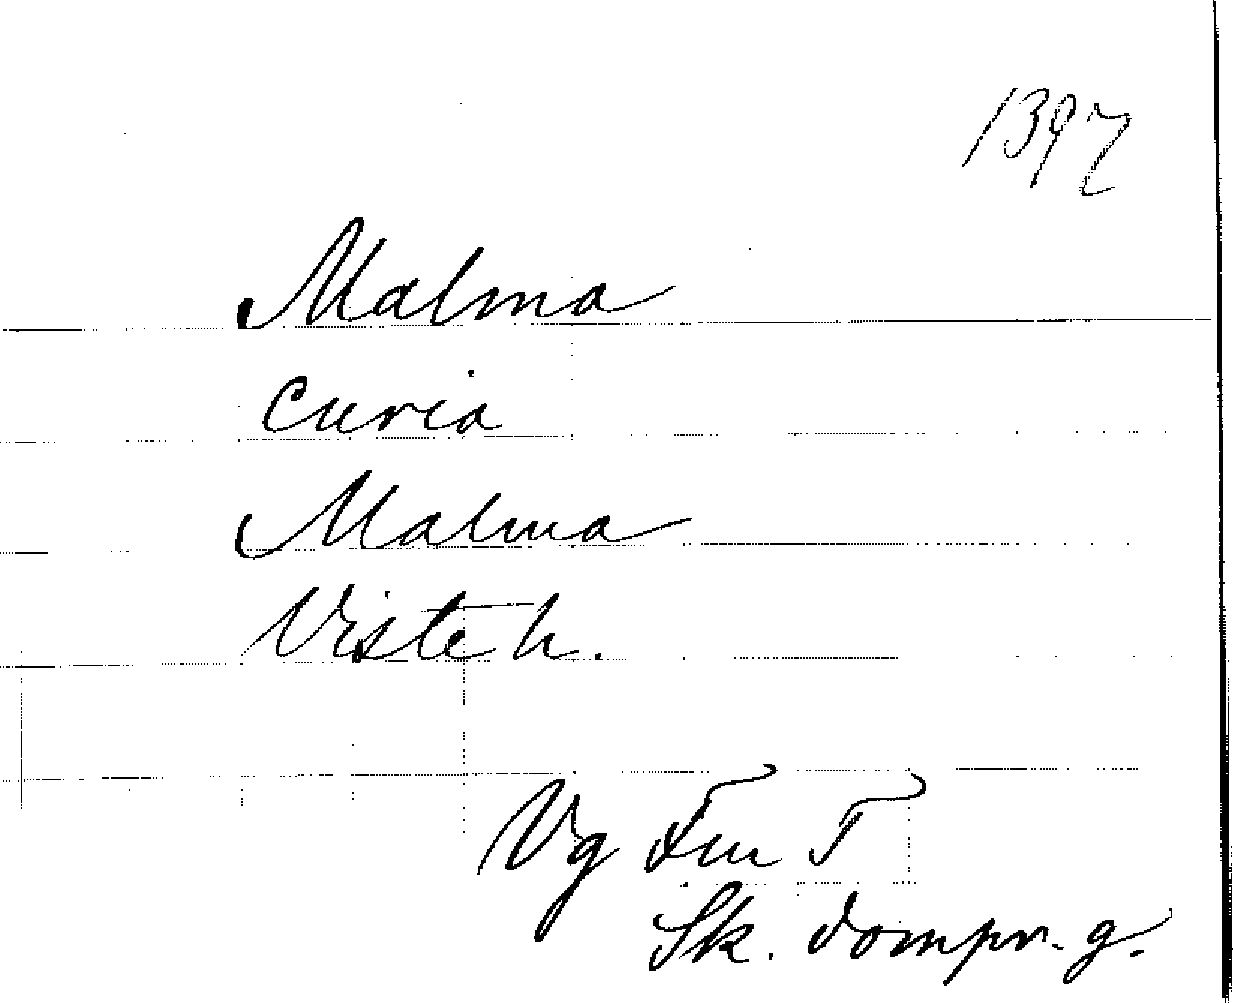 1397
Malma
curia
Malma
Viste h.
Vg Fru T
Sk. dompr. g.